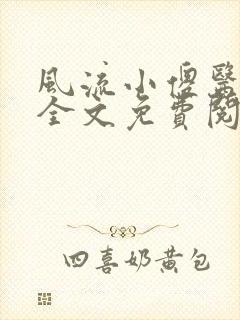 風流小傻醫
全文免費閱
四喜奶黃包